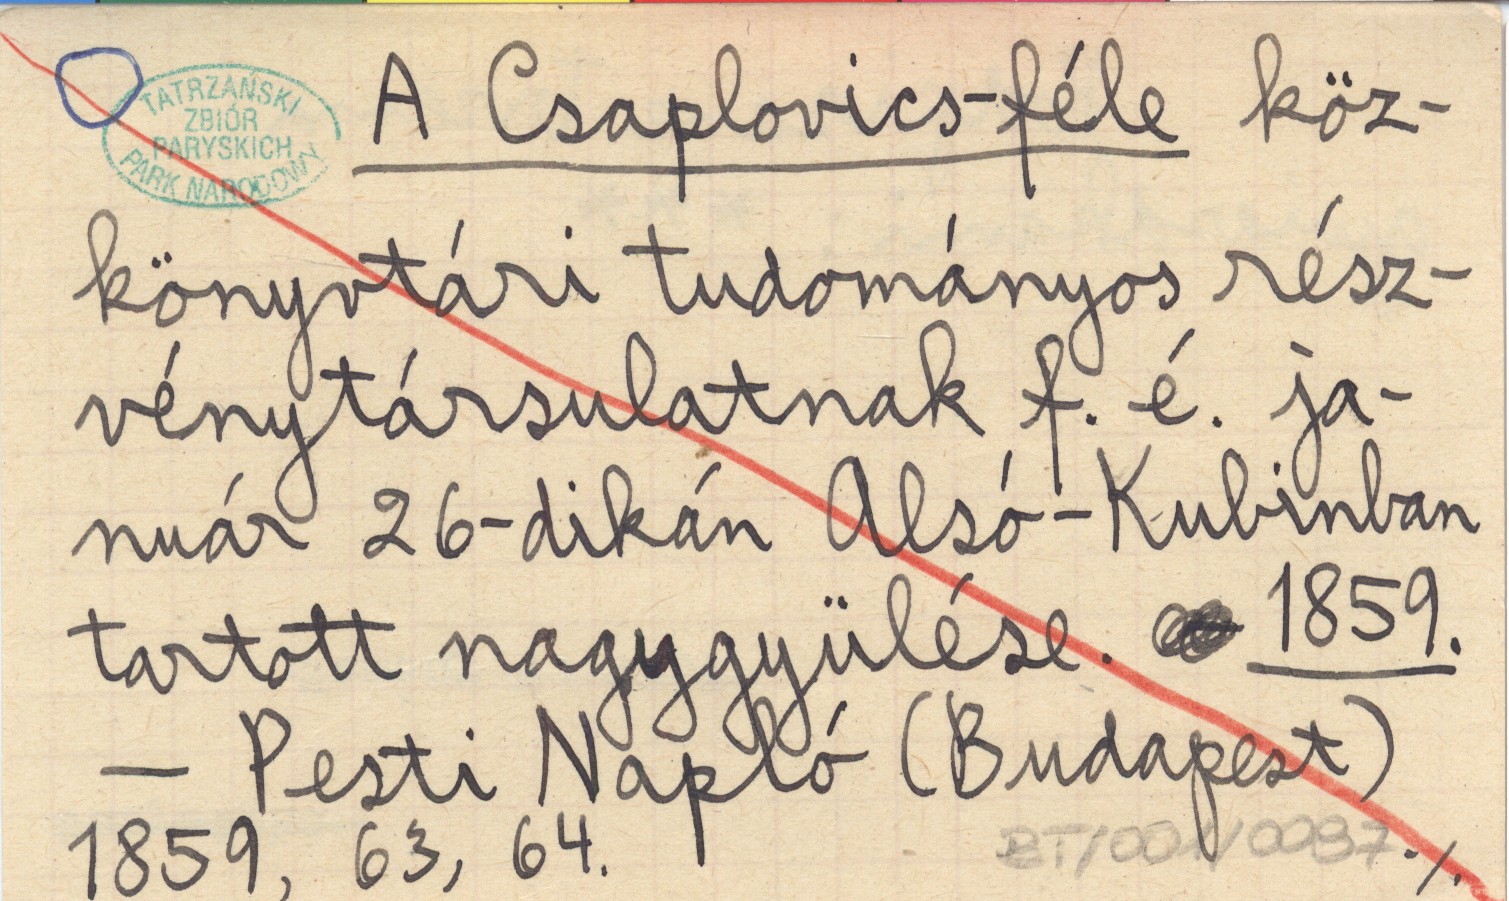 TATRZAŃSKI
ZBIÓR
PARYSKICH
PARK NARODOWY
A Csaplovics-féle köz-
könyvtári tudományos rész-
vénytársulatnak f. é. ja-
nuár 26-dikán Alsó-Kubinban
tartott nagygyülése. 1859.
— Pesti Napló (Budapest)
1859, 63, 64.
BT/001/0087
./.